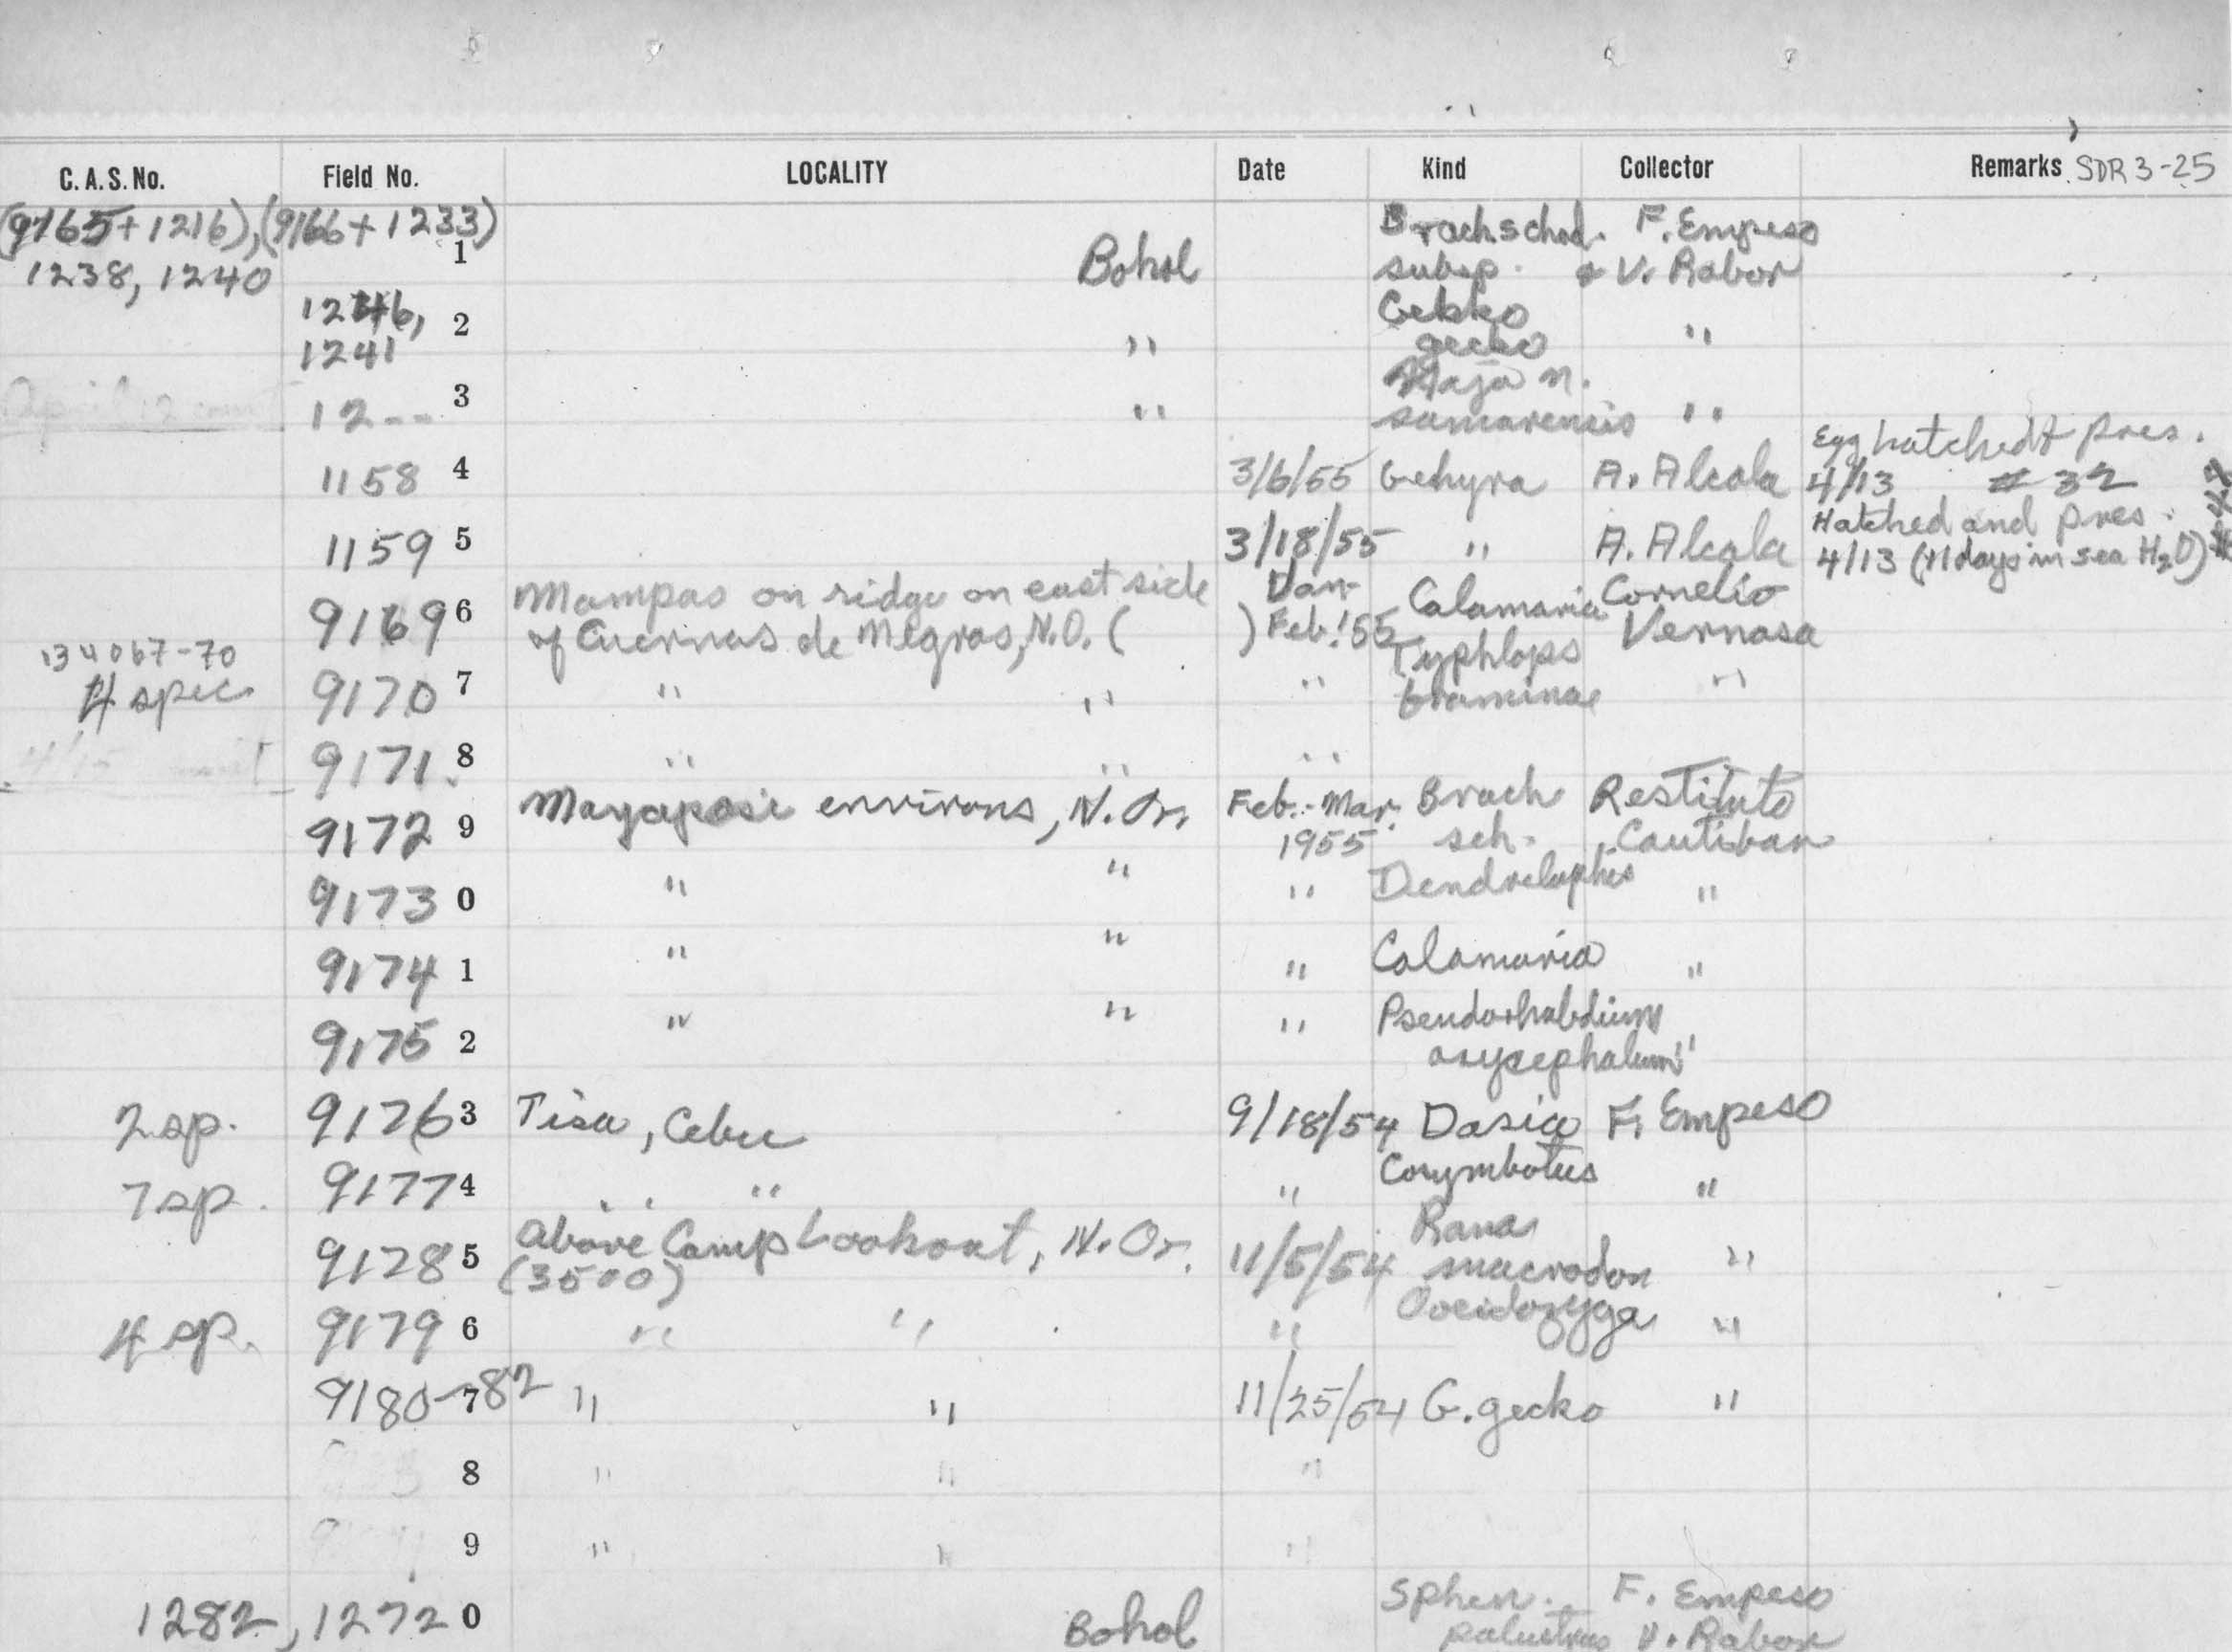 C.A.S. No. Field No. LOCALITY Date Kind Collector Remarks SDR 3-25
(9165+1216), (9166+1233) Brach. schad. F. Empeso
1 Bohol
1238, 1240 subsp. & V. Rabor
1246, 2 Gekko
1241 " gecko "
3 Naja n.
12-- " samarensis "
Egg hatched & pres.
1158 4 3/6/55 Gehyra A. Alcala 4/13 # 32
Hatched and pres.
1159 5 3/18/55 " A. Alcala 4/13 (11 days in sea H2O)
Mampas on ridge on east side Jan- Calamaria Cornelio
9169 6 of Cuernos de Negros, N.O. ( ) Feb. '55 Vernasa
134067-70 Typhlops
4 spec. 9170 7 " " " braminae "
9171. 8 " " "
Mayaposi environs, N. Or. Feb.-Mar. Brach Restituto
9172 9 1955 sch. Cautivar
9173 0 " " " Dendrelaphis "
9174 1 " " " Calamaria "
9175 2 " " " Pseudorhabdium
oxycephalum "
2 sp. 9176 3 Tisa, Cebu 9/18/54 Dasia F. Empeso
7 sp. 9177 4 " " " Cosymbotus "
Above Camp Lookout, N. Or. Rana
9178 5 (3500) 11/5/54 macrodon "
4 sp. 9179 6 " " " Ooeidozyga "
9180-82 7 " " 11/25/54 G. gecko "
8 " " "
9 " " "
Sphen. F. Empeso
1282, 1272 0 Bohol palustris V. Rabor